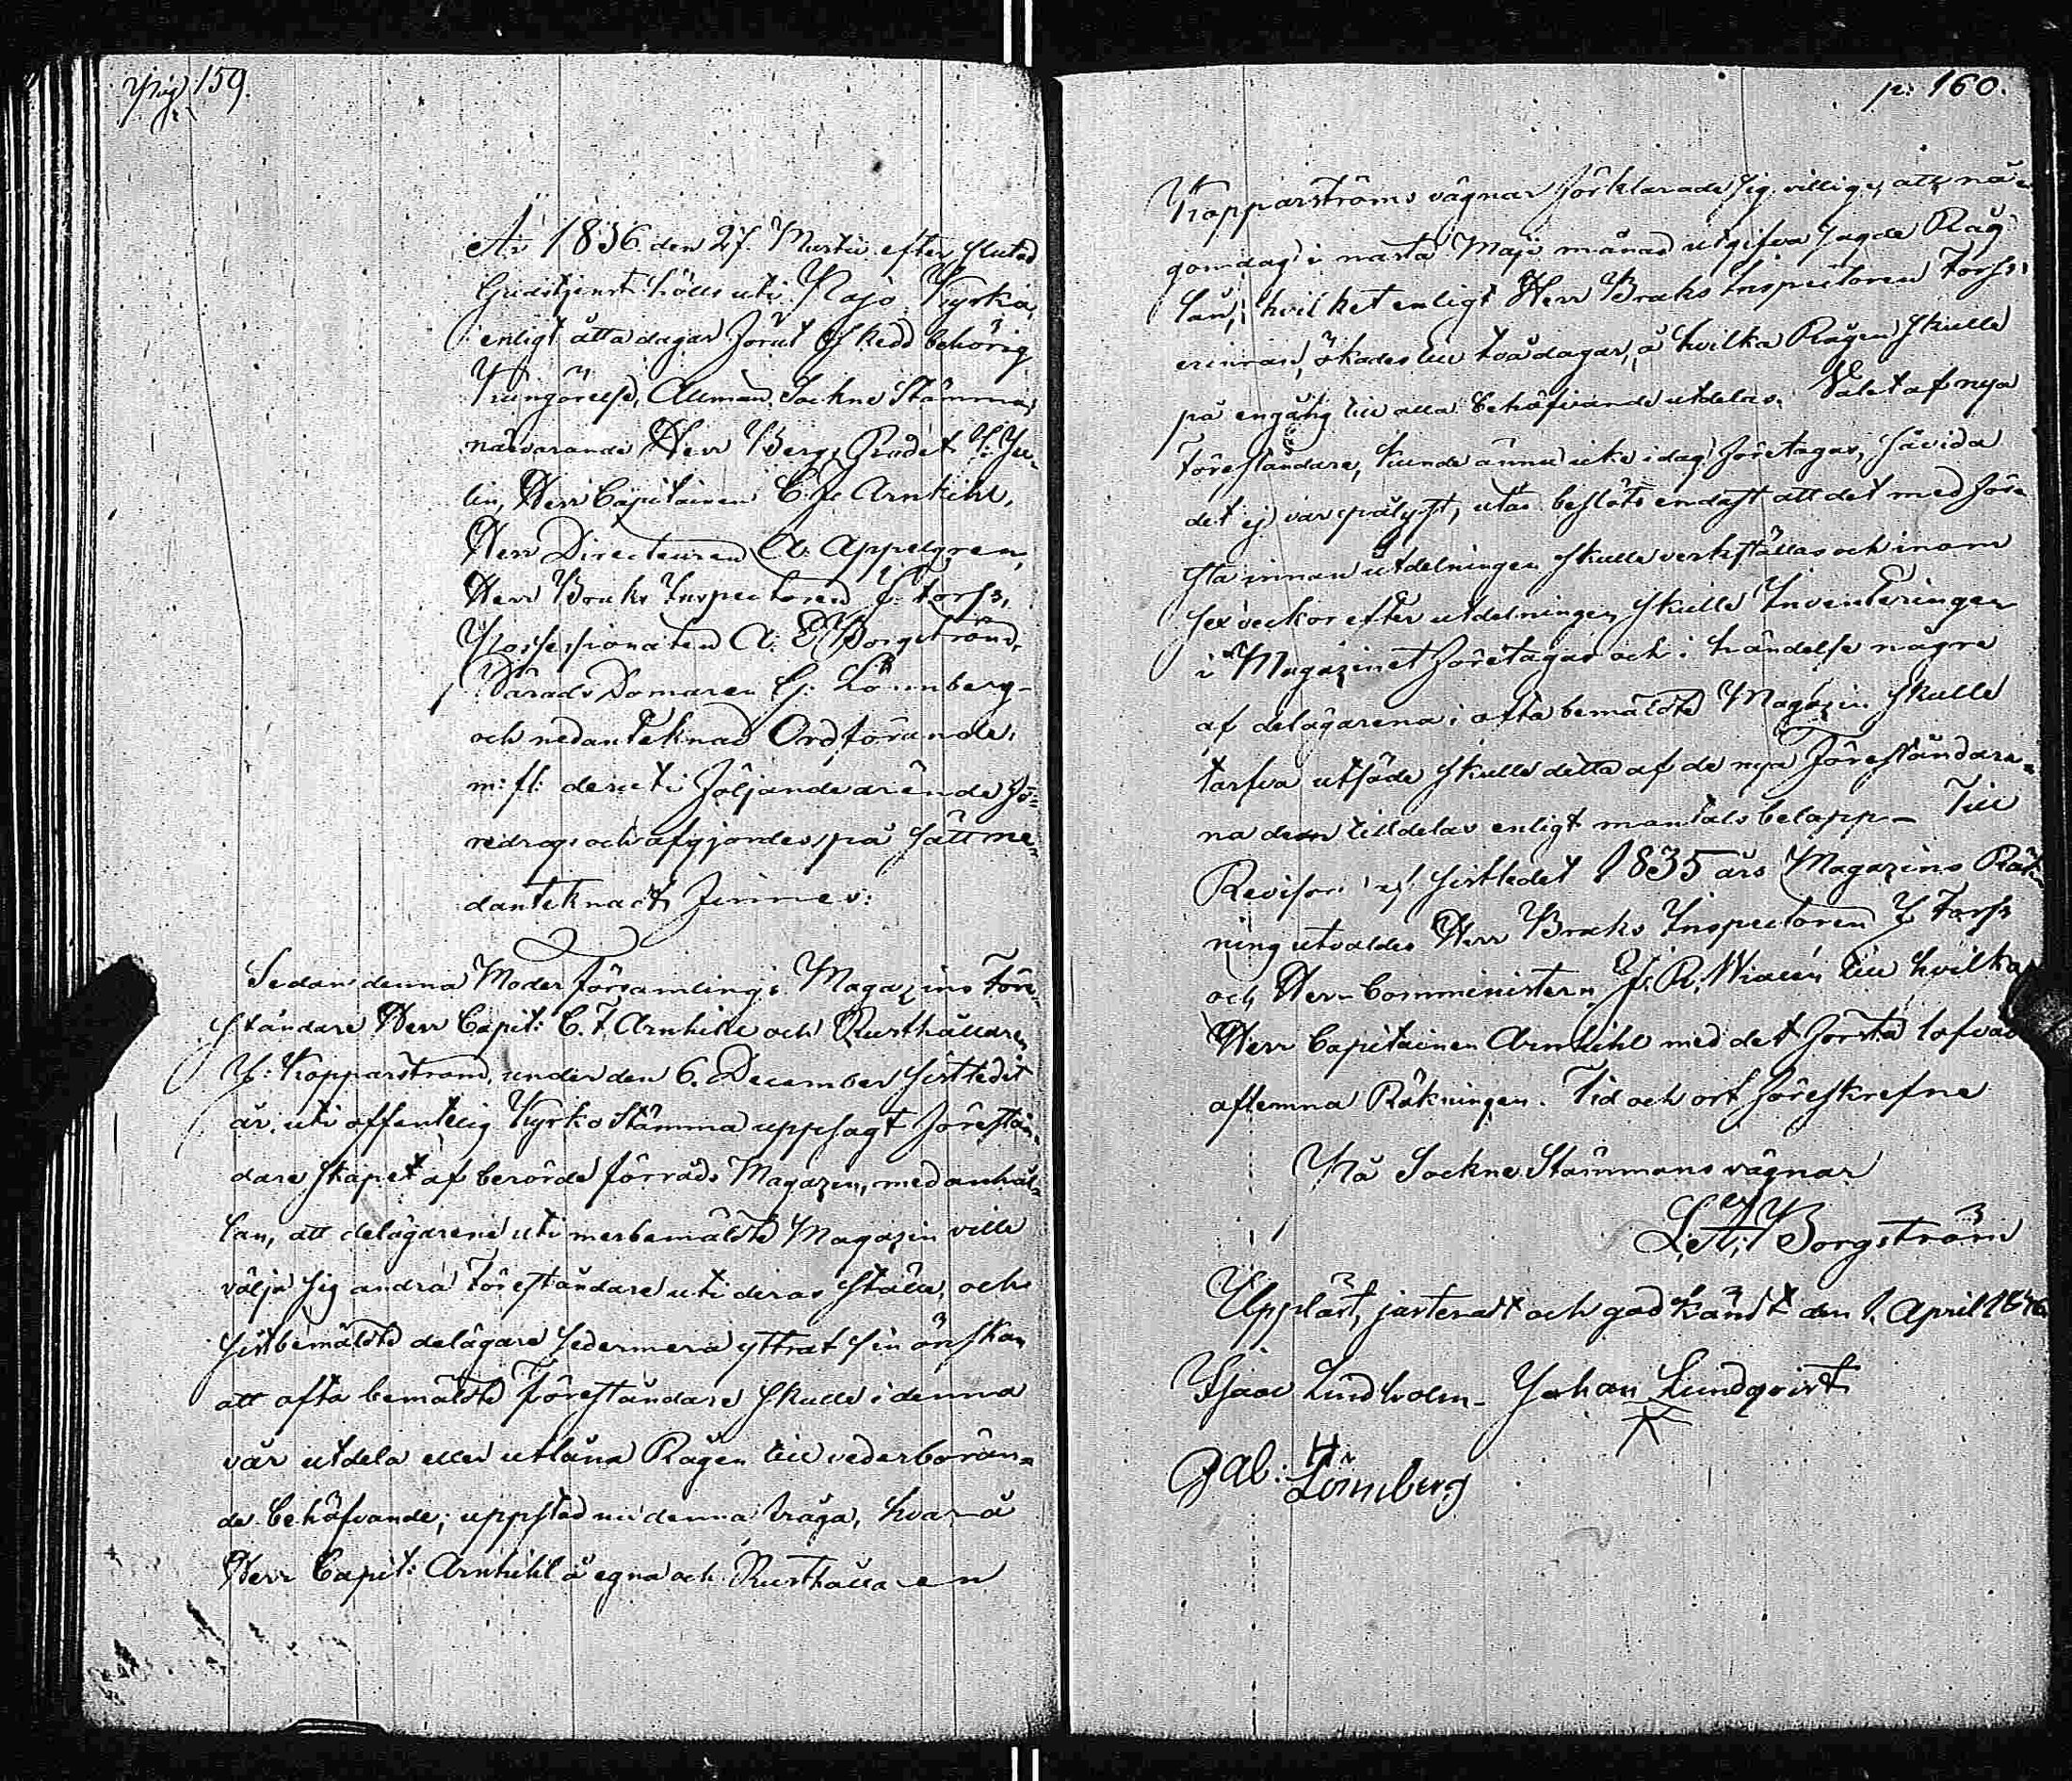 Pag. 159.
År 1836 den 27. Martii efter slutad
Gudstjenst hölls uti Pojo Kyrka,
enligt åtta dagar förut skedd behörig
Kungörelse, Allmän Sockne Stämma,
närvarande Herr Bergs Rådet J: Ju-
lin, Herr Capitainen C. F. Arnkihl,
Herr Directeuren A. Appelgren,
Herr Bruks Inspectoren J. Forss,
Possessionaten A. E. Borgström,
Härads Domaren G: Lönnberg
och nedanteknad Ordförande,
m: fl: deruti följande ärende fö-
redrogs och afgjordes på sätt ne-
danteknadt finnes:
Sedan denna Moderförsamlings Magazins Före-
ståndare Herr Capit: C. F. Arnkihl och Rusthållaren
J: Kopparström, under den 6. December sistledit
år, uti offentelig Kyrko Stämma uppsagt Förestån-
dareskapet af berörde förråds Magazin, med anhål-
lan, att delägarene uti merbemäldte Magazin ville
välja sig andra Föreståndare uti deras ställe, och
sistbemäldte delägare sedermera yttrat sin önskan
att ofta bemäldte Föreståndare skulle i denna
vår utdela eller utlåna Rågen till vederböran-
de behöfvande; uppstod nu denna fråga, hvarå
Herr Capit: Arnkihl å egna och Rusthållaren
p: 160.
Kopparströms vägnar förklarade sig villig, att nå-
gon dag i nästa Maji månad utgifva sagde Råg
lån, hvilket enligt Herr Bruks Inspectoren Forss's
erinran, ökades till två dagar, å hvilka Rågen skulle
på engång till alla behöfvande utdelas. Valet af nya
Föreståndare, kunde ännu icke i dag företagas, såvida
det ej var pålyst, utan beslöts endast att det med för-
sta innan utdelningen skulle verkställas och inom
sex veckor efter utdelningen skulle Inventeringen
i Magazinet företagas och i händelse någre
af delägarena i ofta bemäldte Magazin skulle
tarfva utsäde skulle detta af de nya Föreståndare-
na dem tilldelas enligt mantals belopp – Till
Revisorer af sistledet 1835 års Magazins Räk-
ning utvaldes Herr Bruks Inspectoren J Forss
och Herr Comministern J. R. till hvilka
Herr Capitainen Arnkihl med det första lofvade
aflemna Räkningen. Tid och ort föreskrefne
På Sockne Stämmans vägnar
Borgström
Uppläst, justeradt och godkändt den 1. April 1836
Isaac Lindholm – Johan Lundqvist
Gab: Lönnberg